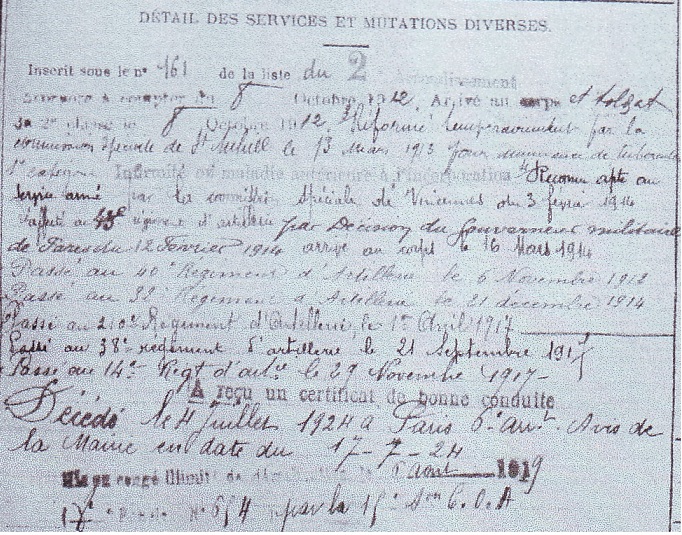 DÉTAIL DES SERVICES ET MUTATIONS DIVERSES.
Inscrit sous le n° 161 de la liste du 2
8 Octobre 1912. Arrivé au corps et soldat
de 2e classe le 8 Octobre 1912. Réformé temporairement par la
commission spéciale de St Mihiel le 13 mars 1913 pour
1re catégorie Infirmité ou maladie antérieure à l'incorporation Reconnu apte au
service armé par la spéciale de Vincennes du 3 février 1914
régiment d'artillerie par Décision du Gouverneur militaire
de Paris du 12 Février 1914 arrivé au corps le 16 Mars 1914
Passé au 40e Régiment d'Artillerie le 6 Novembre 1912
Passé au 32e Régiment d'Artillerie le 21 décembre 1914
Passé au 210e Régiment d'Artillerie, le 1er Avril 1917
Passé au 38e régiment d'artillerie le 21 Septembre 1917
Passé au 14e Regt d'artie le 29 Novembre 1917-
A reçu un certificat de bonne conduite
Décédé le 4 Juillet 1924 à Paris 6e arrt. Avis de
la Mairie en date du 17-7-24
congé illimité de Aout 1919
N° 654 par la 15e Son C.O.A